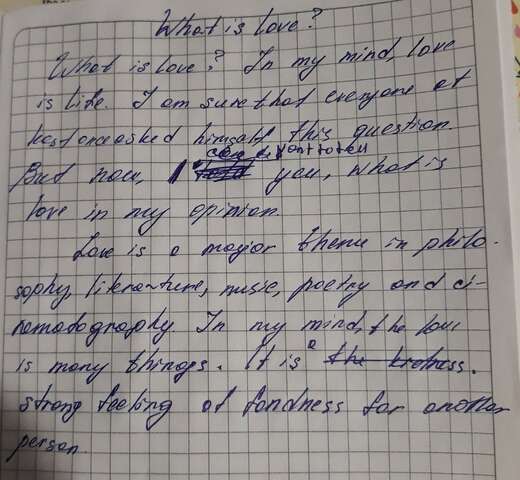 What is love?
What is love? In my mind, love
is life. I am sure that everyone at
least once asked himself this question.
But now, I want to tell you, what is
love in my opinion.
Love is a major theme in philo-
sophy, literature, music, poetry and ci-
nematography. In my mind, the love
is many things. It is a
strong feeling of fondness for another
person.